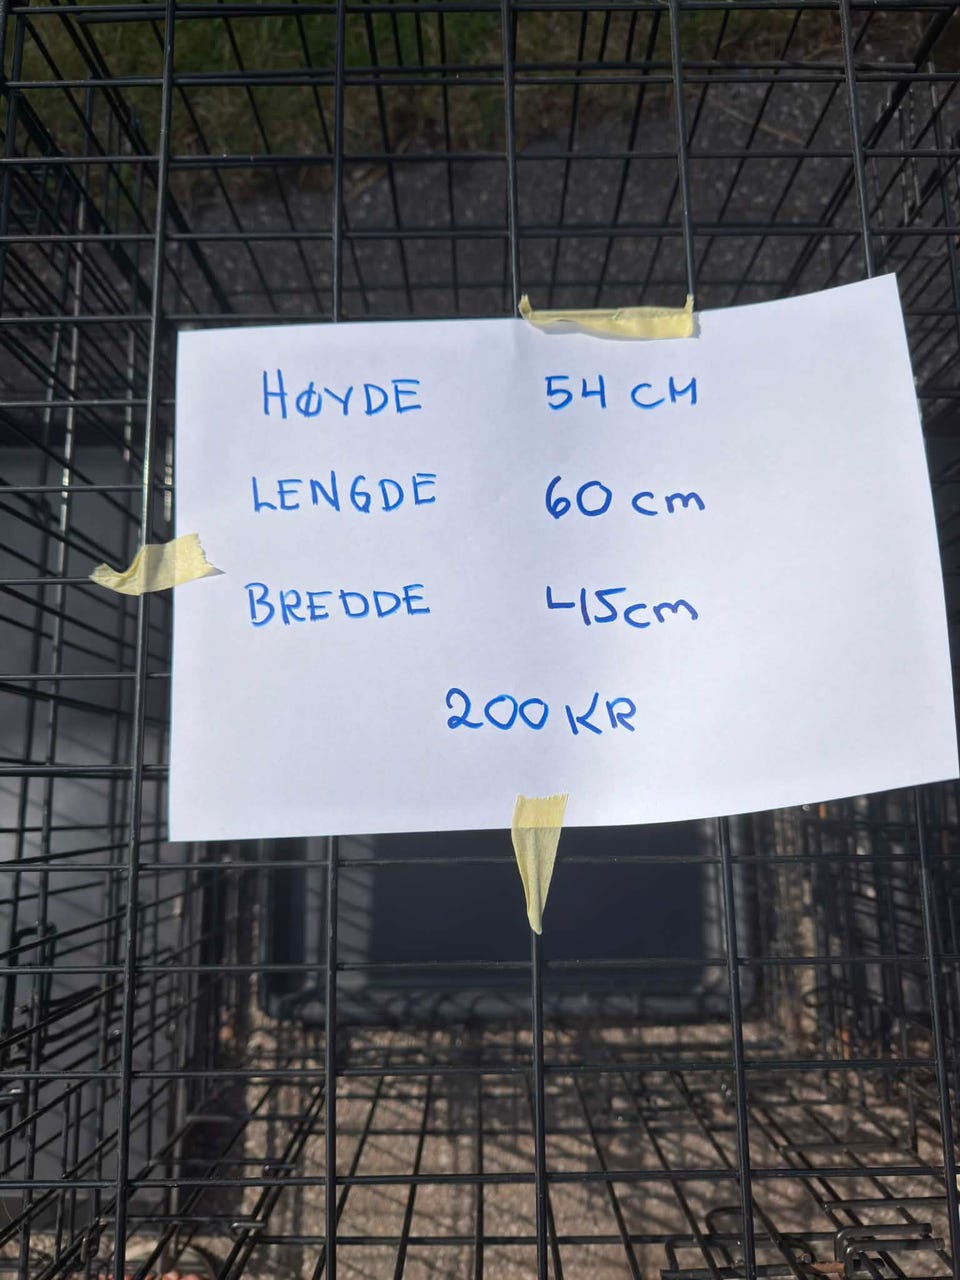 HØYDE 54 CM
LENGDE 60 cm
BREDDE 45cm
200 KR